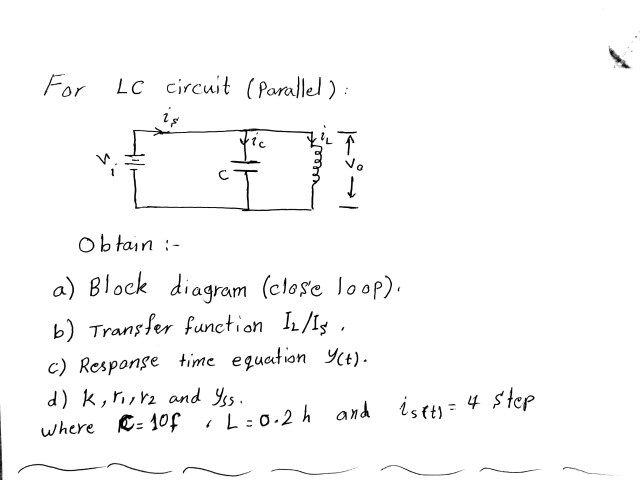 For LC circuit (Parallel):
is
ic
iL
Vi
C
Vo
Obtain :-
a) Block diagram (close loop).
b) Transfer function IL/Is .
c) Response time equation y(t).
d) k, r1, r2 and yss.
where C = 10f , L = 0.2 h and is(t) = 4 step